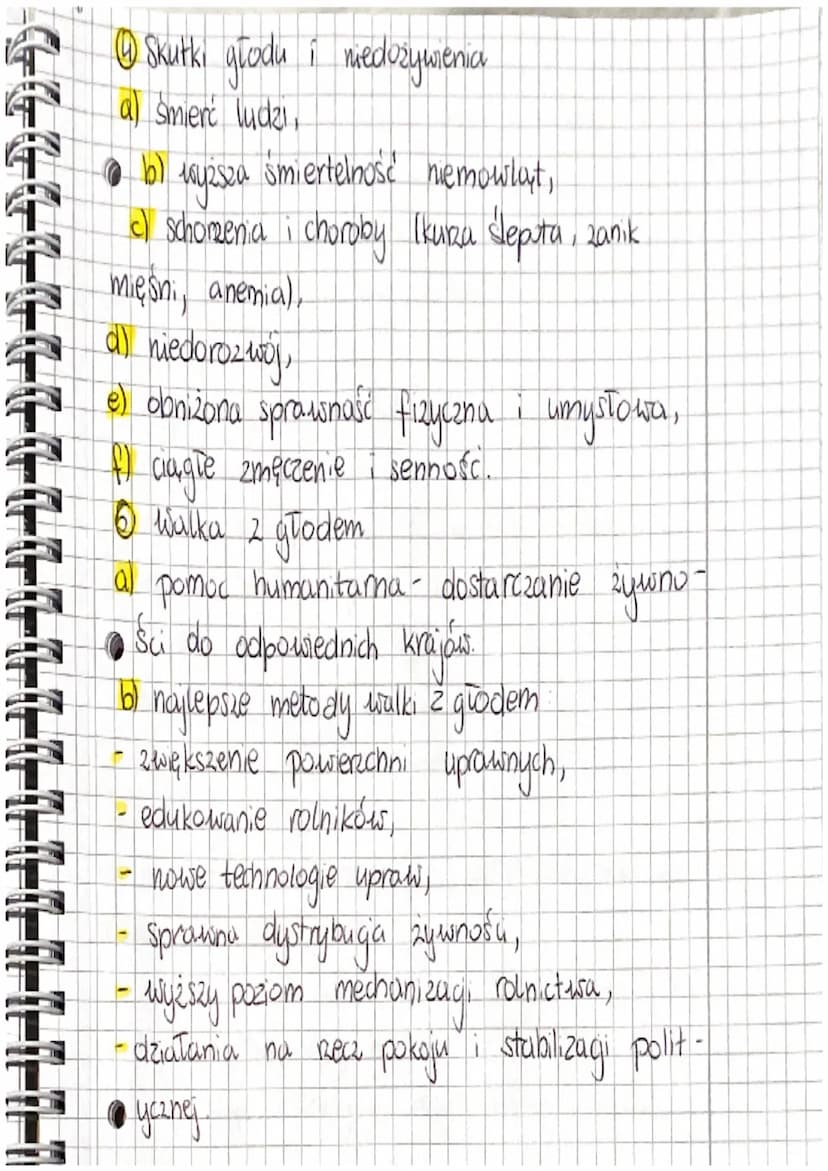 ④ Skutki głodu i niedożywienia
a) śmierć ludzi,
b) wyższa śmiertelność niemowląt,
c) schorzenia i choroby (kurza ślepota, zanik
mięśni, anemia),
d) niedorozwój,
e) obniżona sprawność fizyczna i umysłowa,
f) ciągłe zmęczenie i senność.
⑤ Walka z głodem
a) pomoc humanitarna - dostarczanie żywno-
ści do odpowiednich krajów.
b) najlepsze metody walki z głodem:
- zwiększenie powierzchni uprawnych,
- edukowanie rolników,
- nowe technologie upraw,
- sprawna dystrybucja żywności,
- wyższy poziom mechanizacji rolnictwa,
- działania na rzecz pokoju i stabilizacji polit-
ycznej.